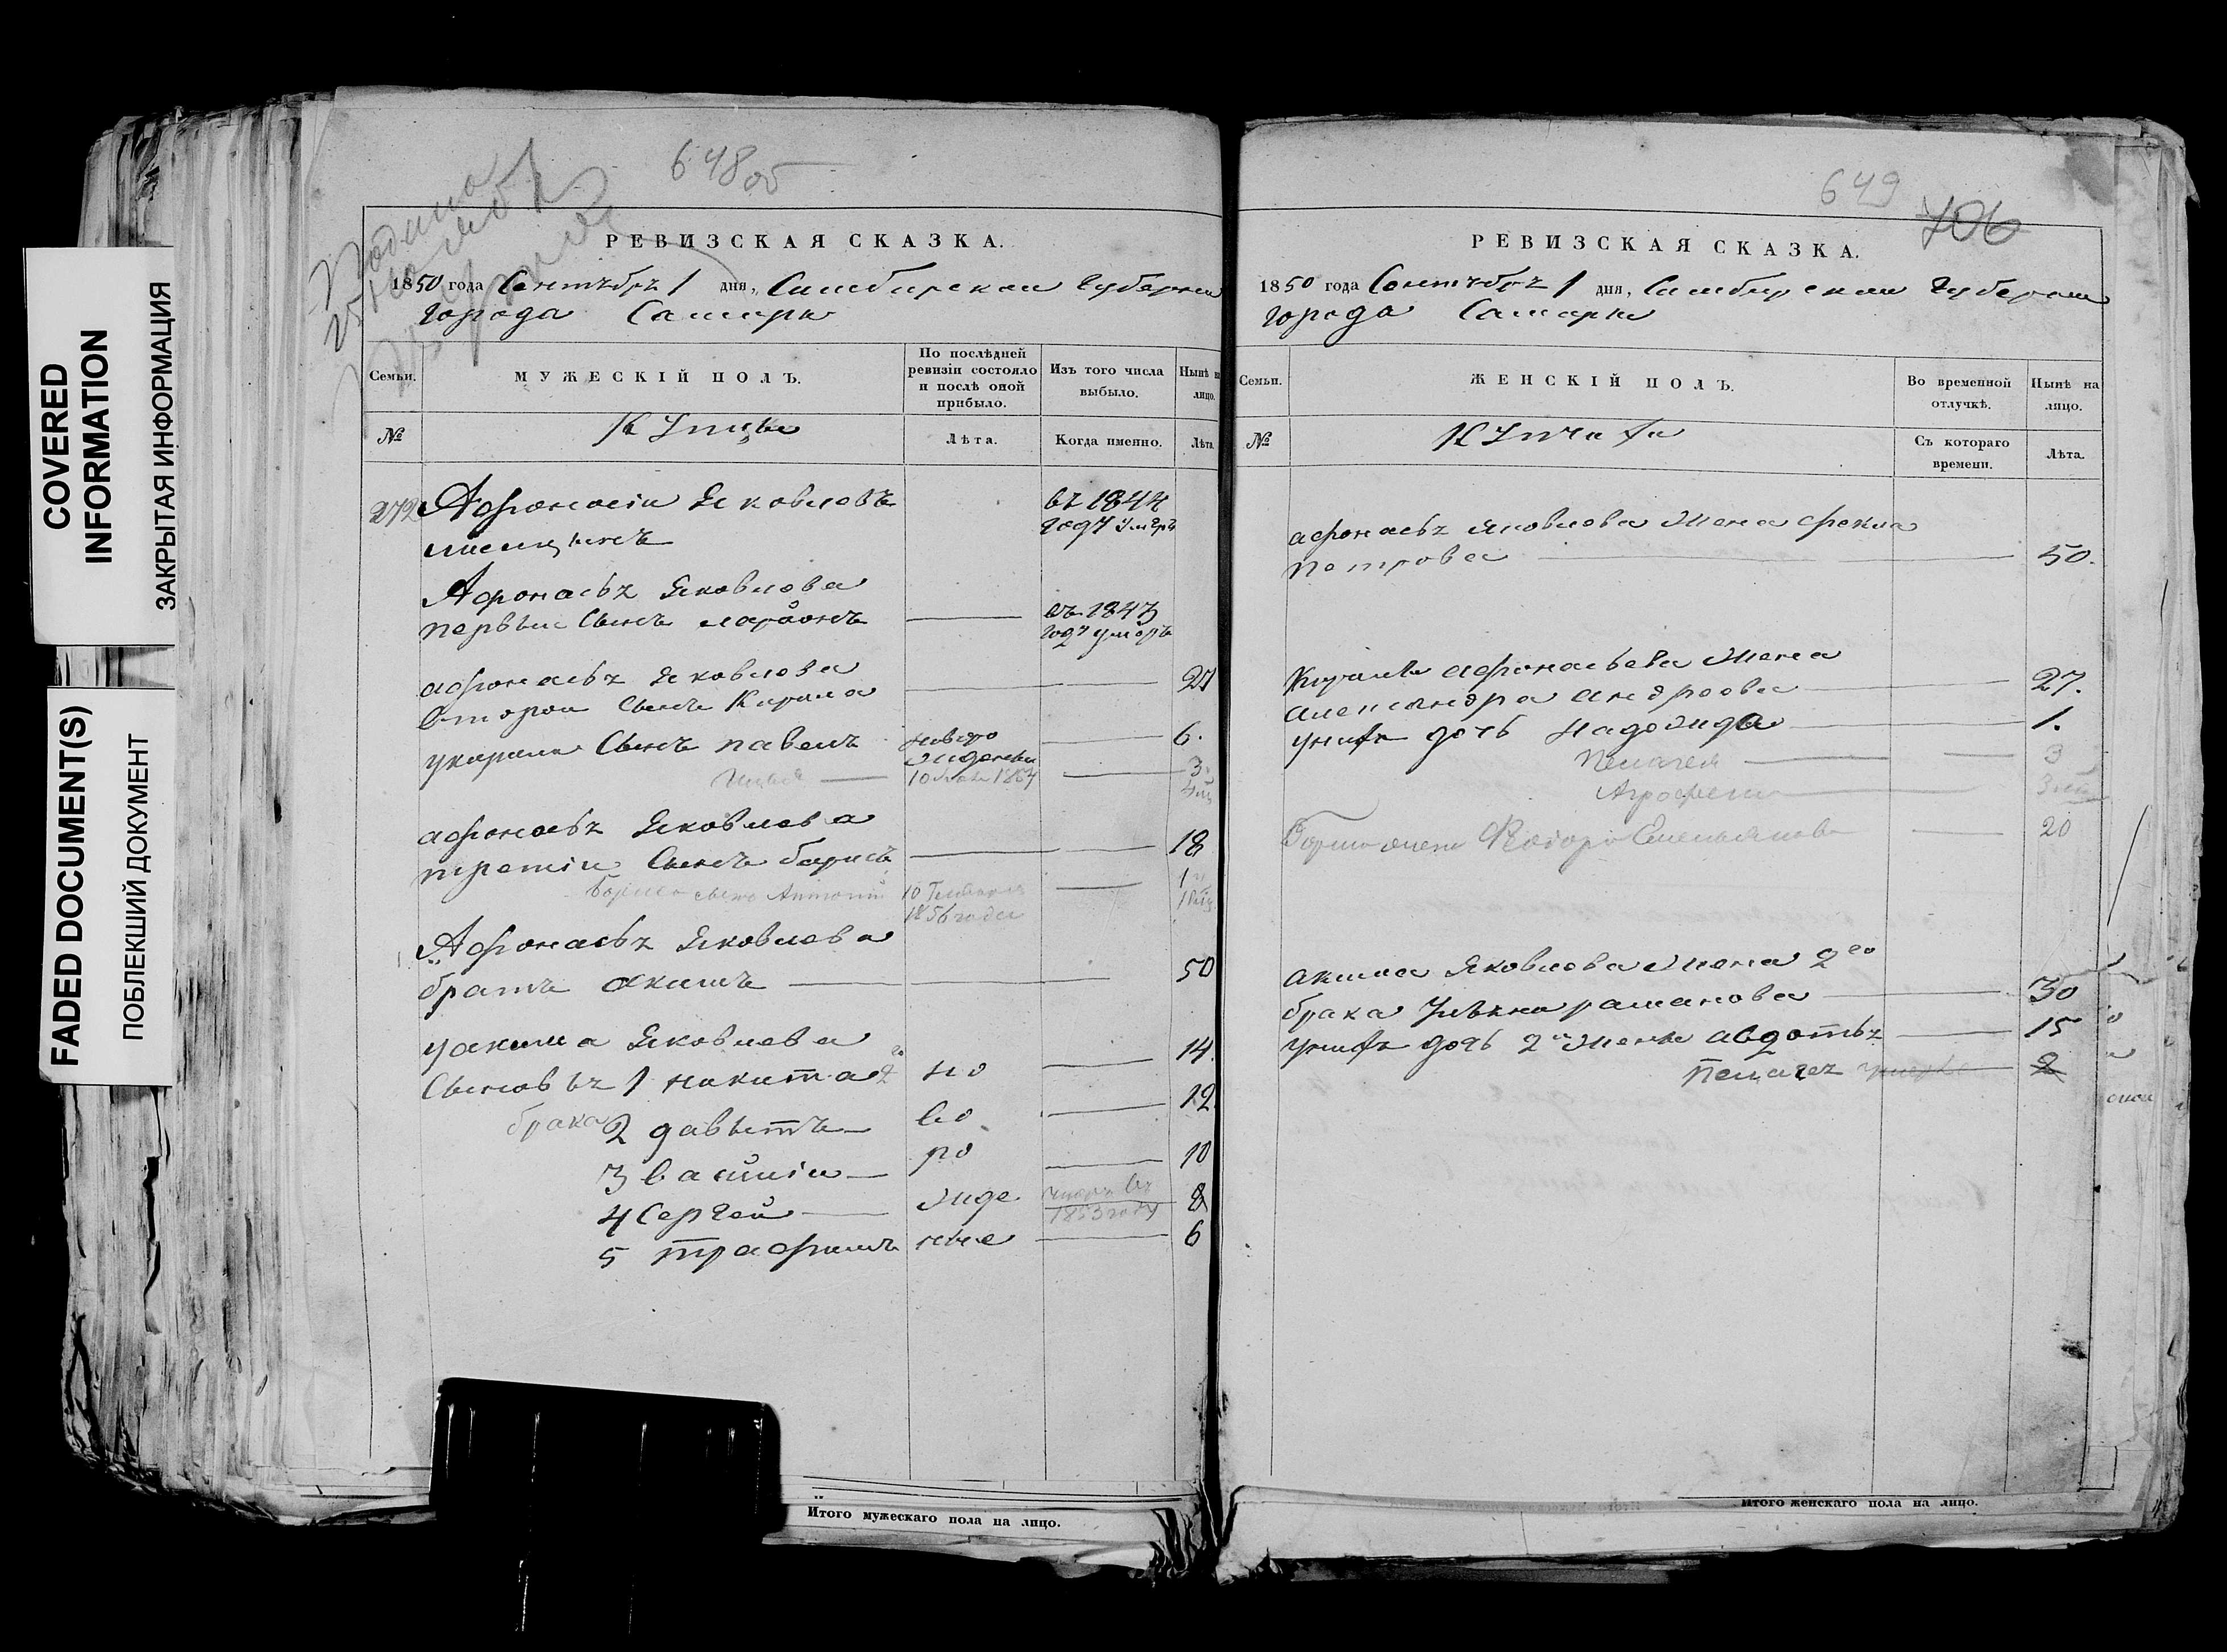 COVERED
INFORMATION
ЗАКРЫТАЯ ИНФОРМАЦИЯ
FADED DOCUMENT(S)
ПОБЛЕКШИЙ ДОКУМЕНТ
648 об
РЕВИЗСКАЯ СКАЗКА.
1850 года Сентебрь 1 дня, Симбирскои Губернии
Города Самары
Семьи.
МУЖЕСКІЙ ПОЛЪ.
По послѣдней
ревизіи состояло
и послѣ оной
прибыло.
Изъ того числа
выбыло.
Нынѣ на
лицо.
№
Купцы
Лѣта.
Когда именно.
Лѣта
272 Афонасіи Яковлевъ
въ 1844
году умеръ
Афонасья Яковлева
первыи Сынъ ларионъ
въ 1847
году умеръ
афонасья Яковлева
второи Сынъ Кирила 27
укирила Сынъ павелъ новоро 6.
жденны
10 мая 1854 3
афонасья Яковлева
третіи Сынъ барисъ 18
Бориса сынъ Антоній 10 Генваря 1
1856 года
Афонасья Яковлева
братъ акимъ 50
уакима Яковлева
Сыновья 1 никита 2го но 14.
брака 2 давытъ во 12.
3 василіи ро 10
4 Сергеи жде умеръ въ 8
1853 году
5 трафимъ ные 6
Итого мужескаго пола на лицо.
649
706
РЕВИЗСКАЯ СКАЗКА.
1850 года Сентебрь 1 дня, Симбирскои Губернии
города Самары
Семьи.
ЖЕНСКІЙ ПОЛЪ.
Во временной
отлучкѣ.
Нынѣ на
лицо.
№
Купчихи
Съ котораго
времени.
Лѣта.
афонасья Яковлева Жена фекла
петрова 50.
Кирилы афонасьева Жена
александра андреева 27.
униxъ дочь надежда 1.
Пелагея 3
Агрофена 3
Бориса жена Федора Емельянова 20
акима Яковлева Жена 2го
брака Ульяна раманова 30
унихъ дочь 2й Жены авдотья 15
пелагея умерла 2
Итого женскаго пола на лицо.